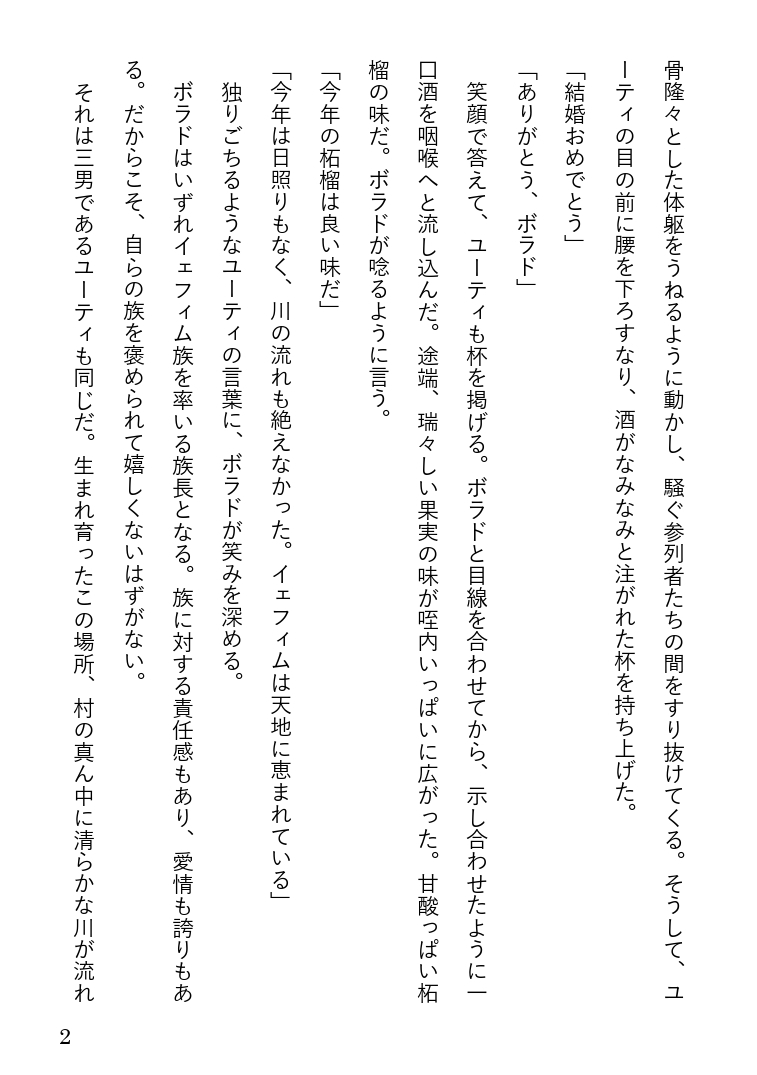 骨隆々とした体躯をうねるように動かし、騒ぐ参列者たちの間をすり抜けてくる。そうして、ユ
ーティの目の前に腰を下ろすなり、酒がなみなみと注がれた杯を持ち上げた。
「結婚おめでとう」
「ありがとう、ボラド」
　笑顔で答えて、ユーティも杯を掲げる。ボラドと目線を合わせてから、示し合わせたように一
口酒を咽喉へと流し込んだ。途端、瑞々しい果実の味が咥内いっぱいに広がった。甘酸っぱい柘
榴の味だ。ボラドが唸るように言う。
「今年の柘榴は良い味だ」
「今年は日照りもなく、川の流れも絶えなかった。イェフィムは天地に恵まれている」
　独りごちるようなユーティの言葉に、ボラドが笑みを深める。
　ボラドはいずれイェフィム族を率いる族長となる。族に対する責任感もあり、愛情も誇りもあ
る。だからこそ、自らの族を褒められて嬉しくないはずがない。
　それは三男であるユーティも同じだ。生まれ育ったこの場所、村の真ん中に清らかな川が流れ
2